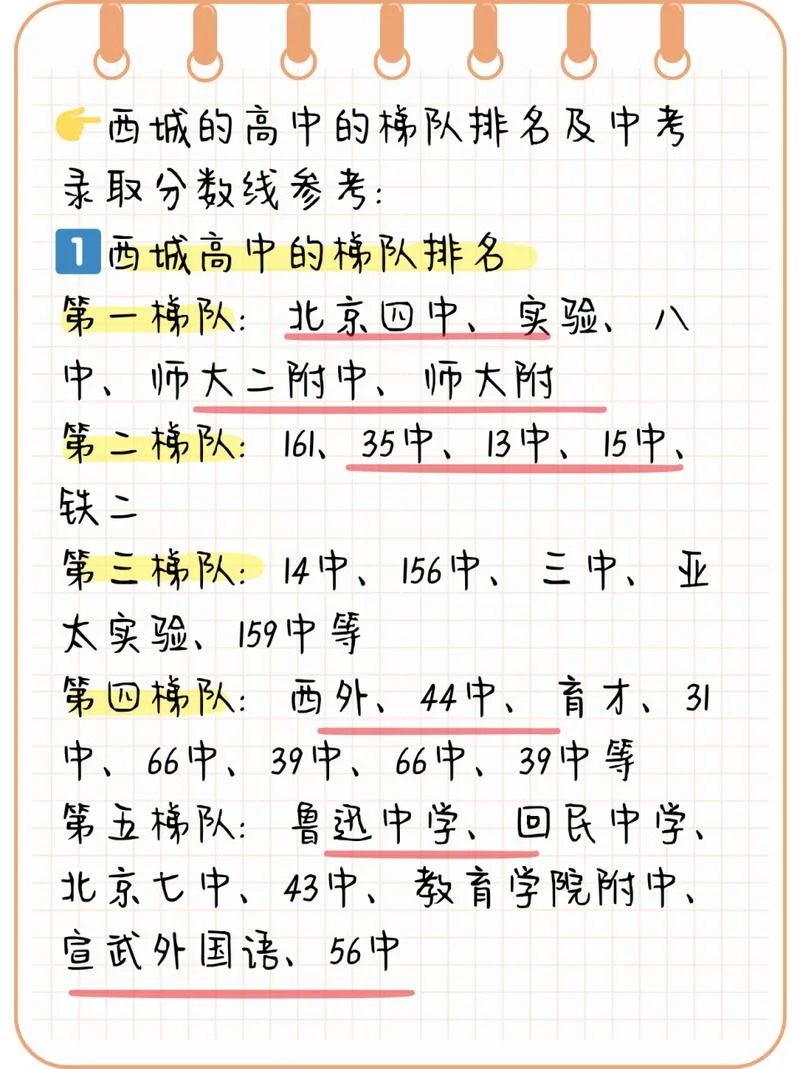 👉西城的高中的梯队排名及中考
录取分数线参考:
1西城高中的梯队排名
第一梯队: 北京四中、实验、八
中、师大二附中、师大附
第二梯队: 161、35中、13中、15中、
铁二
第三梯队: 14中、156中、三中、亚
太实验、159中等
第四梯队: 西外、44中、育才、31
中、66中、39中、66中、39中等
第五梯队: 鲁迅中学、回民中学、
北京七中、43中、教育学院附中、
宣武外国语、56中